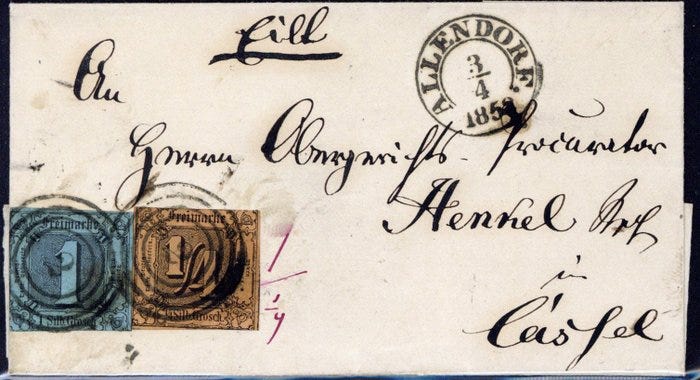 Eilt
ALLENDORF.
3/4
185
An
Herrn Obergerichts-Procurator
Henkel
in
Cassel
Freimarke
1
1 Silb. Grosch.
Freimarke
1/2
1/2 Silb. Grosch.
1
1/4